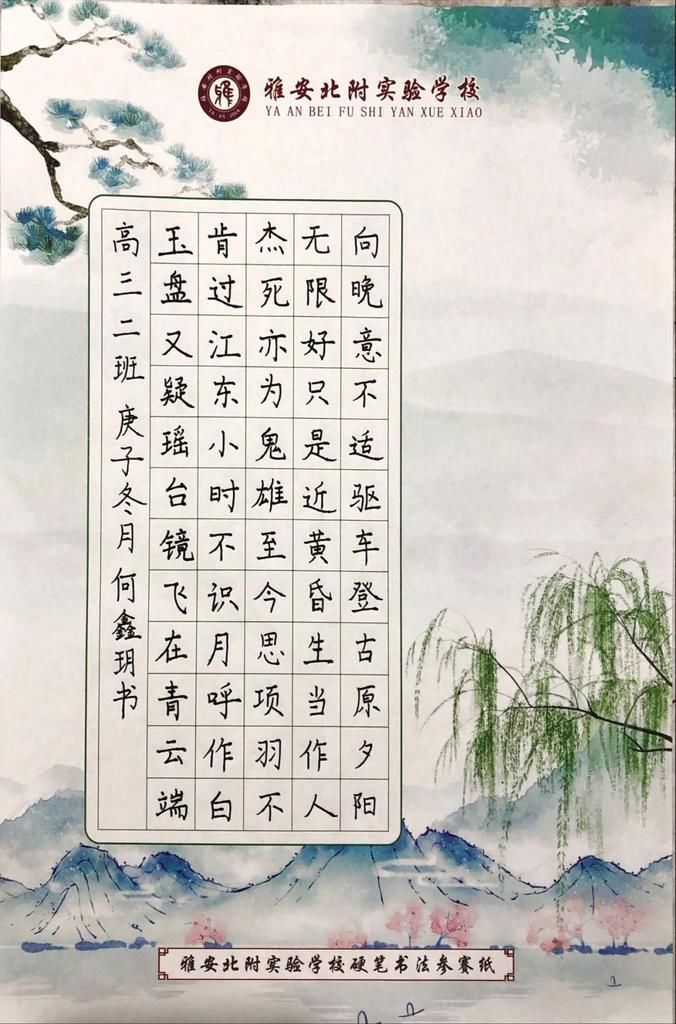 雅安北附实验学校
YA AN BEI FU SHI YAN XUE XIAO
向晚意不适驱车登古原夕阳
无限好只是近黄昏生当作人
杰死亦为鬼雄至今思项羽不
肯过江东小时不识月呼作白
玉盘又疑瑶台镜飞在青云端
高三二班庚子冬月何鑫玥书
雅安北附实验学校硬笔书法参赛纸